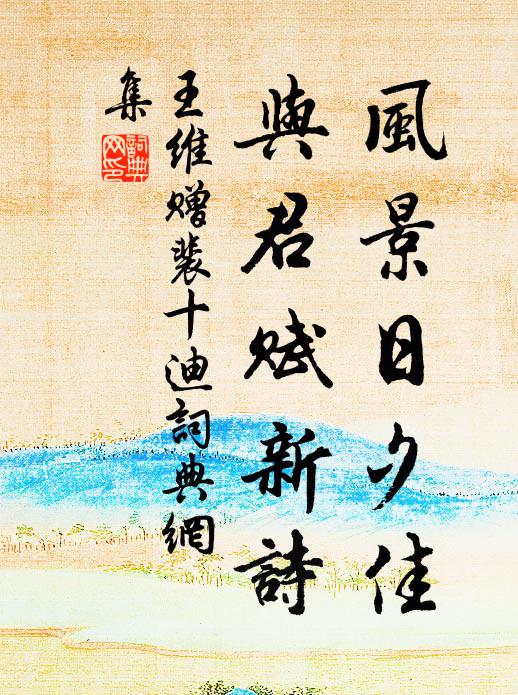 風景日夕佳
與君賦新詩
王維贈裴十迪詞典網
集
詞典
網印